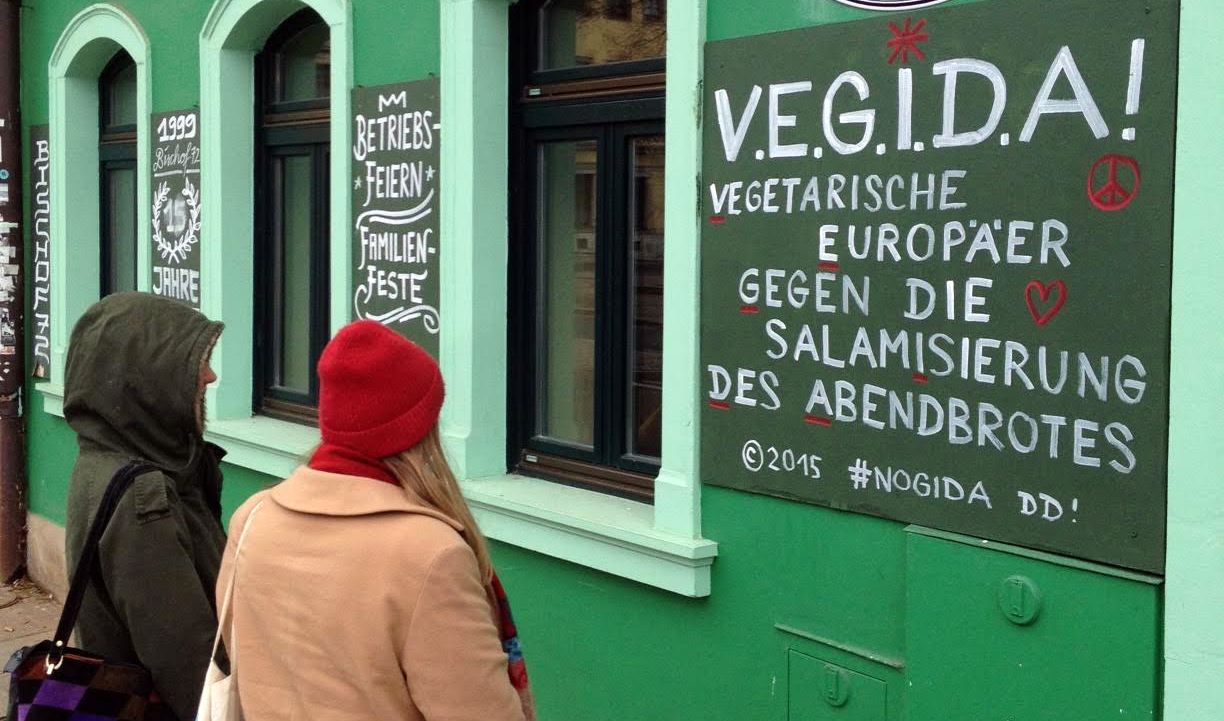 BISCHOF 72
1999
Bischof 72
15
JAHRE
BETRIEBS-
FEIERN
FAMILIEN-
FESTE
V.E.G.I.D.A!
VEGETARISCHE
EUROPÄER
GEGEN DIE
SALAMISIERUNG
DES ABENDBROTES
©2015 #NOGIDA DD!